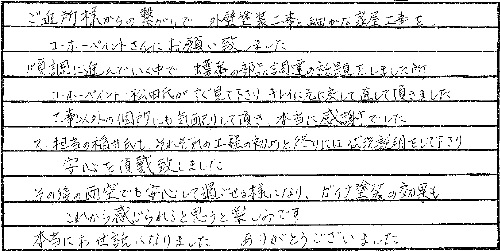 ご近所様からの繋がりで 外壁塗装工事と細かな家屋工事を、
ユーホーペイントさんにお願い致しました
順調に進んでいく中で の部品の話題をしました所
ユーホーペイント 松田氏がすぐ見て下さり キレイに元に戻して直して頂きました
工事以外の個所にも気配りして頂き、本当に感謝でした
又、担当の稲井氏も それぞれの工程の初めと終りには状況説明をして下さり
安心を頂戴致しました
その後の雨空でも安心して過ごせる様になり、ガイナ塗装の効果も
これから感じられると思うと楽しみです
本当にお世話になりました ありがとうございました